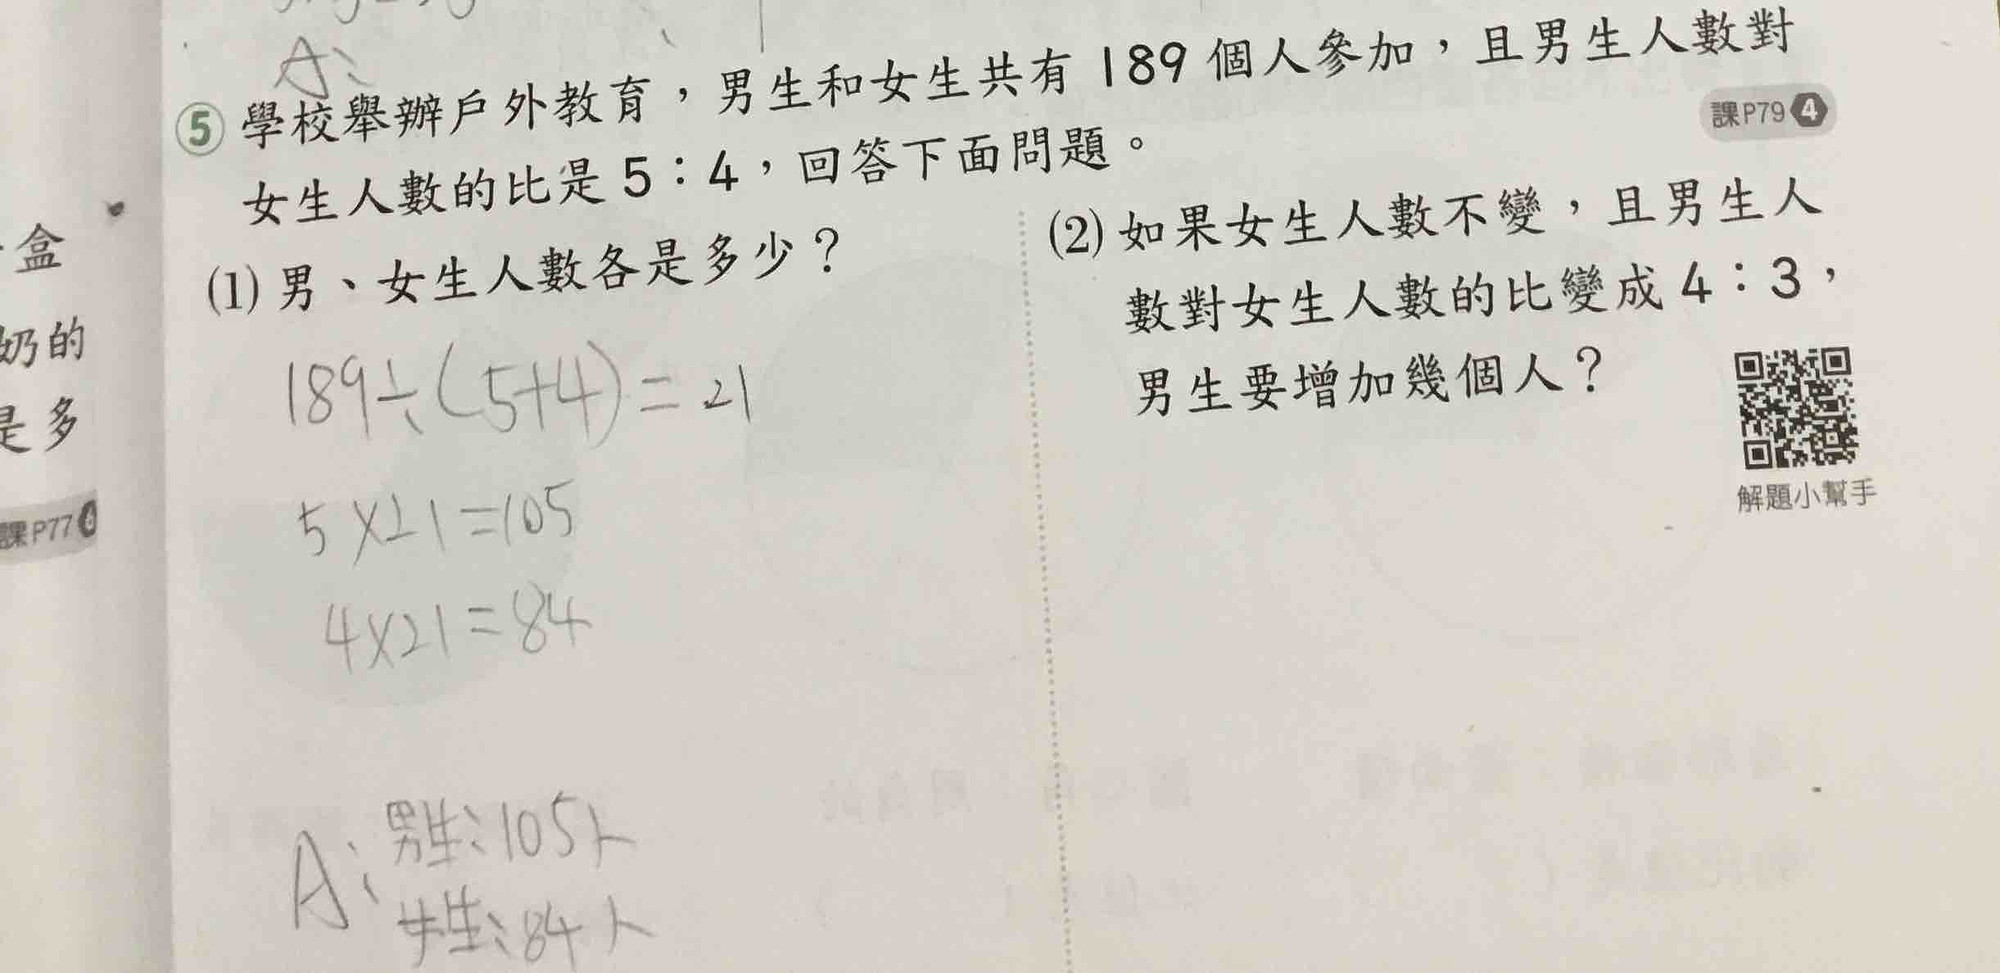 A:
⑤ 學校舉辦戶外教育，男生和女生共有 189 個人參加，且男生人數對
女生人數的比是 5：4，回答下面問題。
課P79 4
(1) 男、女生人數各是多少？
189÷(5+4)=21
5×21=105
4×21=84
A: 男生:105人
女生:84人
(2) 如果女生人數不變，且男生人
數對女生人數的比變成 4：3，
男生要增加幾個人？
解題小幫手
盒
奶的
是多
課P77